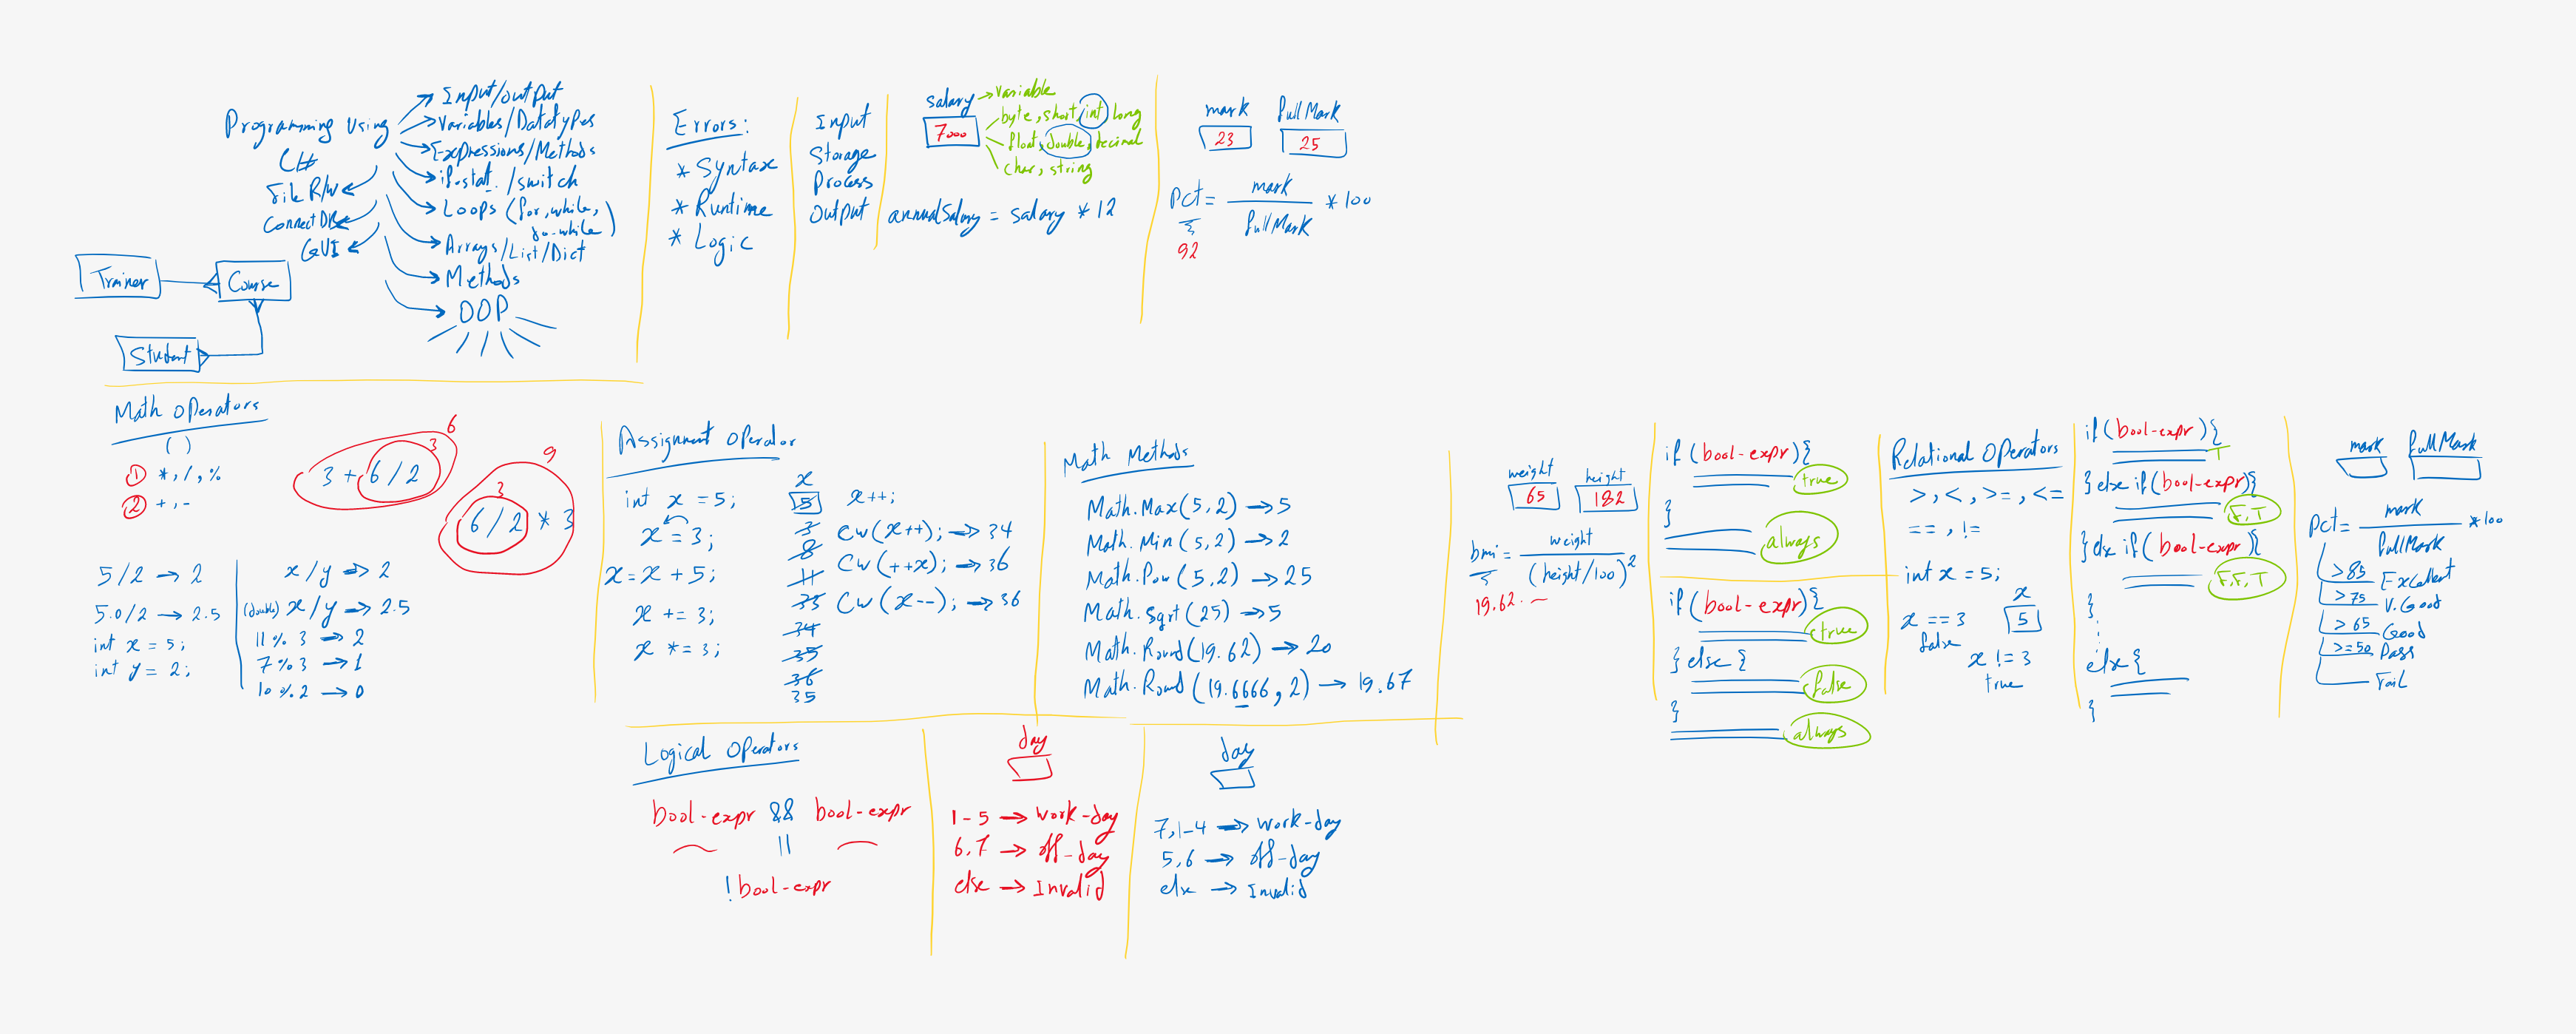 Programming Using
C#
Input/output
Variables/Datatypes
Expressions/Methods
if.stat./switch
Loops (for, while,
do-while)
Arrays/List/Dict
Methods
OOP
File R/W
Connect DB
GUI
Trainer
Course
Student
Errors:
* Syntax
* Runtime
* Logic
Input
Storage
Process
Output
salary
7000
variable
byte, short, int, long
float, double, decimal
char, string
annualSalary = salary * 12
mark fullMark
23 25
pct = mark / fullMark * 100
92
Math Operators
( )
1 *, /, %
2 +, -
3 + 6 / 2
3
6
6 / 2 * 3
3
9
5/2 → 2
5.0/2 → 2.5
int x = 5;
int y = 2;
x/y → 2
(double) x/y → 2.5
11 % 3 → 2
7 % 3 → 1
10 % 2 → 0
Assignment Operator
int x = 5;
x = 3;
x = x + 5;
x += 3;
x *= 3;
x
5
3
8
11
33
34
35
36
35
x++;
Cw(x++); → 34
Cw(++x); → 36
Cw(x--); → 36
Math Methods
Math.Max(5, 2) → 5
Math.Min(5, 2) → 2
Math.Pow(5, 2) → 25
Math.Sqrt(25) → 5
Math.Round(19.62) → 20
Math.Round(19.6666, 2) → 19.67
weight height
65 182
bmi = weight / (height/100)²
19.62.
if (bool-expr){
true
}
always
if (bool-expr){
true
} else {
false
}
always
Relational Operators
>, <, >=, <=
==, !=
int x = 5;
x == 3
false
x
5
x != 3
true
if (bool-expr){
T
} else if (bool-expr){
F, T
} else if (bool-expr){
F, F, T
}
else {
}
mark fullMark
pct = mark / fullMark * 100
>85 Excellent
>75 V.Good
>65 Good
>=50 Pass
Fail
Logical Operators
bool-expr && bool-expr
||
! bool-expr
day
1-5 → work-day
6,7 → off-day
else → Invalid
day
7,1-4 → work-day
5,6 → off-day
else → Invalid